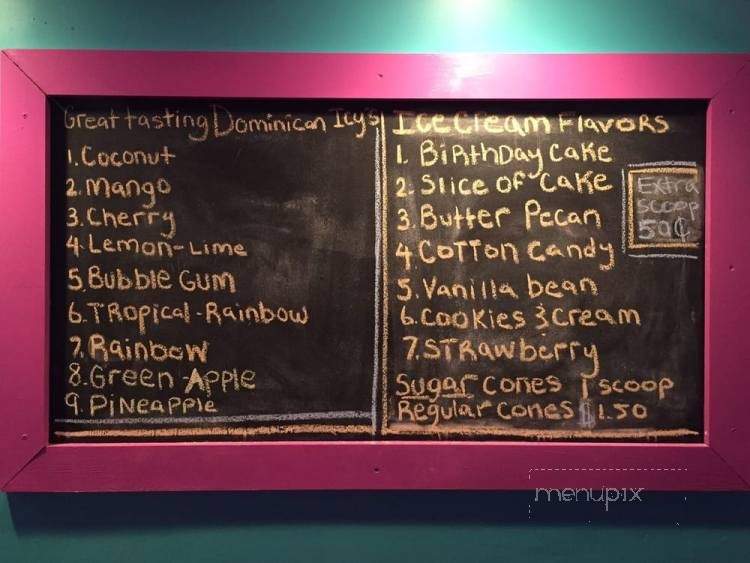 Great tasting Dominican Icy's
1. Coconut
2. Mango
3. Cherry
4. Lemon-Lime
5. Bubble Gum
6. Tropical-Rainbow
7. Rainbow
8. Green Apple
9. Pineapple
Ice Cream Flavors
1. Birthday Cake
2. Slice of Cake
3. Butter Pecan
4. Cotton Candy
5. Vanilla bean
6. Cookies & Cream
7. Strawberry
Sugar cones 1 scoop
Regular cones $1.50
Extra
scoop
50¢
menupix